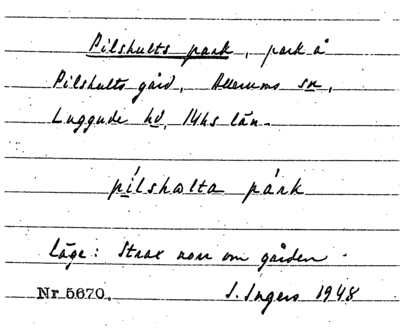 Pilshults park, park å
Pilshults gård, Allerums sn,
Luggude hd, Mhs län.
pílshælta párk
Läge: Strax norr om gården.
Nr. 5670. I. Ingers 1948